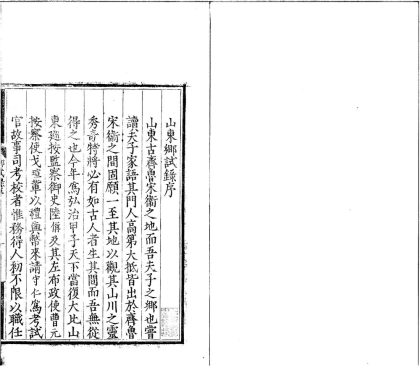 山東鄉試錄序
山東古齊魯宋衛之地而吾夫子之鄉也嘗
讀夫子家語其門人高第大抵皆出於齊魯
宋衛之間固願一至其地以觀其山川之靈
秀奇特將必有如古人者生其間而吾無從
得之也今年爲弘治甲子天下當復大比山
東巡按監察御史陸偁及其左布政使曹元
按察使戈瑄輩以禮與幣來請守仁爲考試
官故事司考校者惟務得人初不限以職任